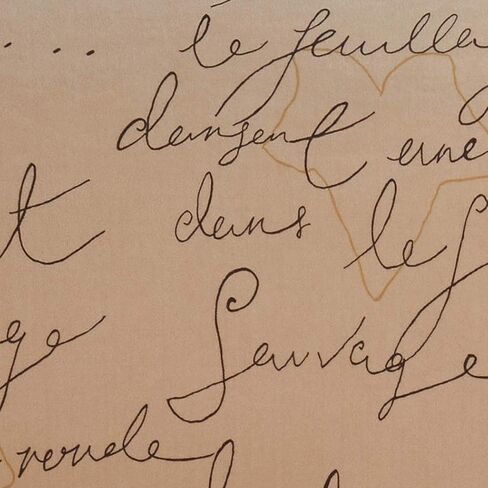 ... le feuilla
dansent une
t dans le f
ge Sauvage
ronde